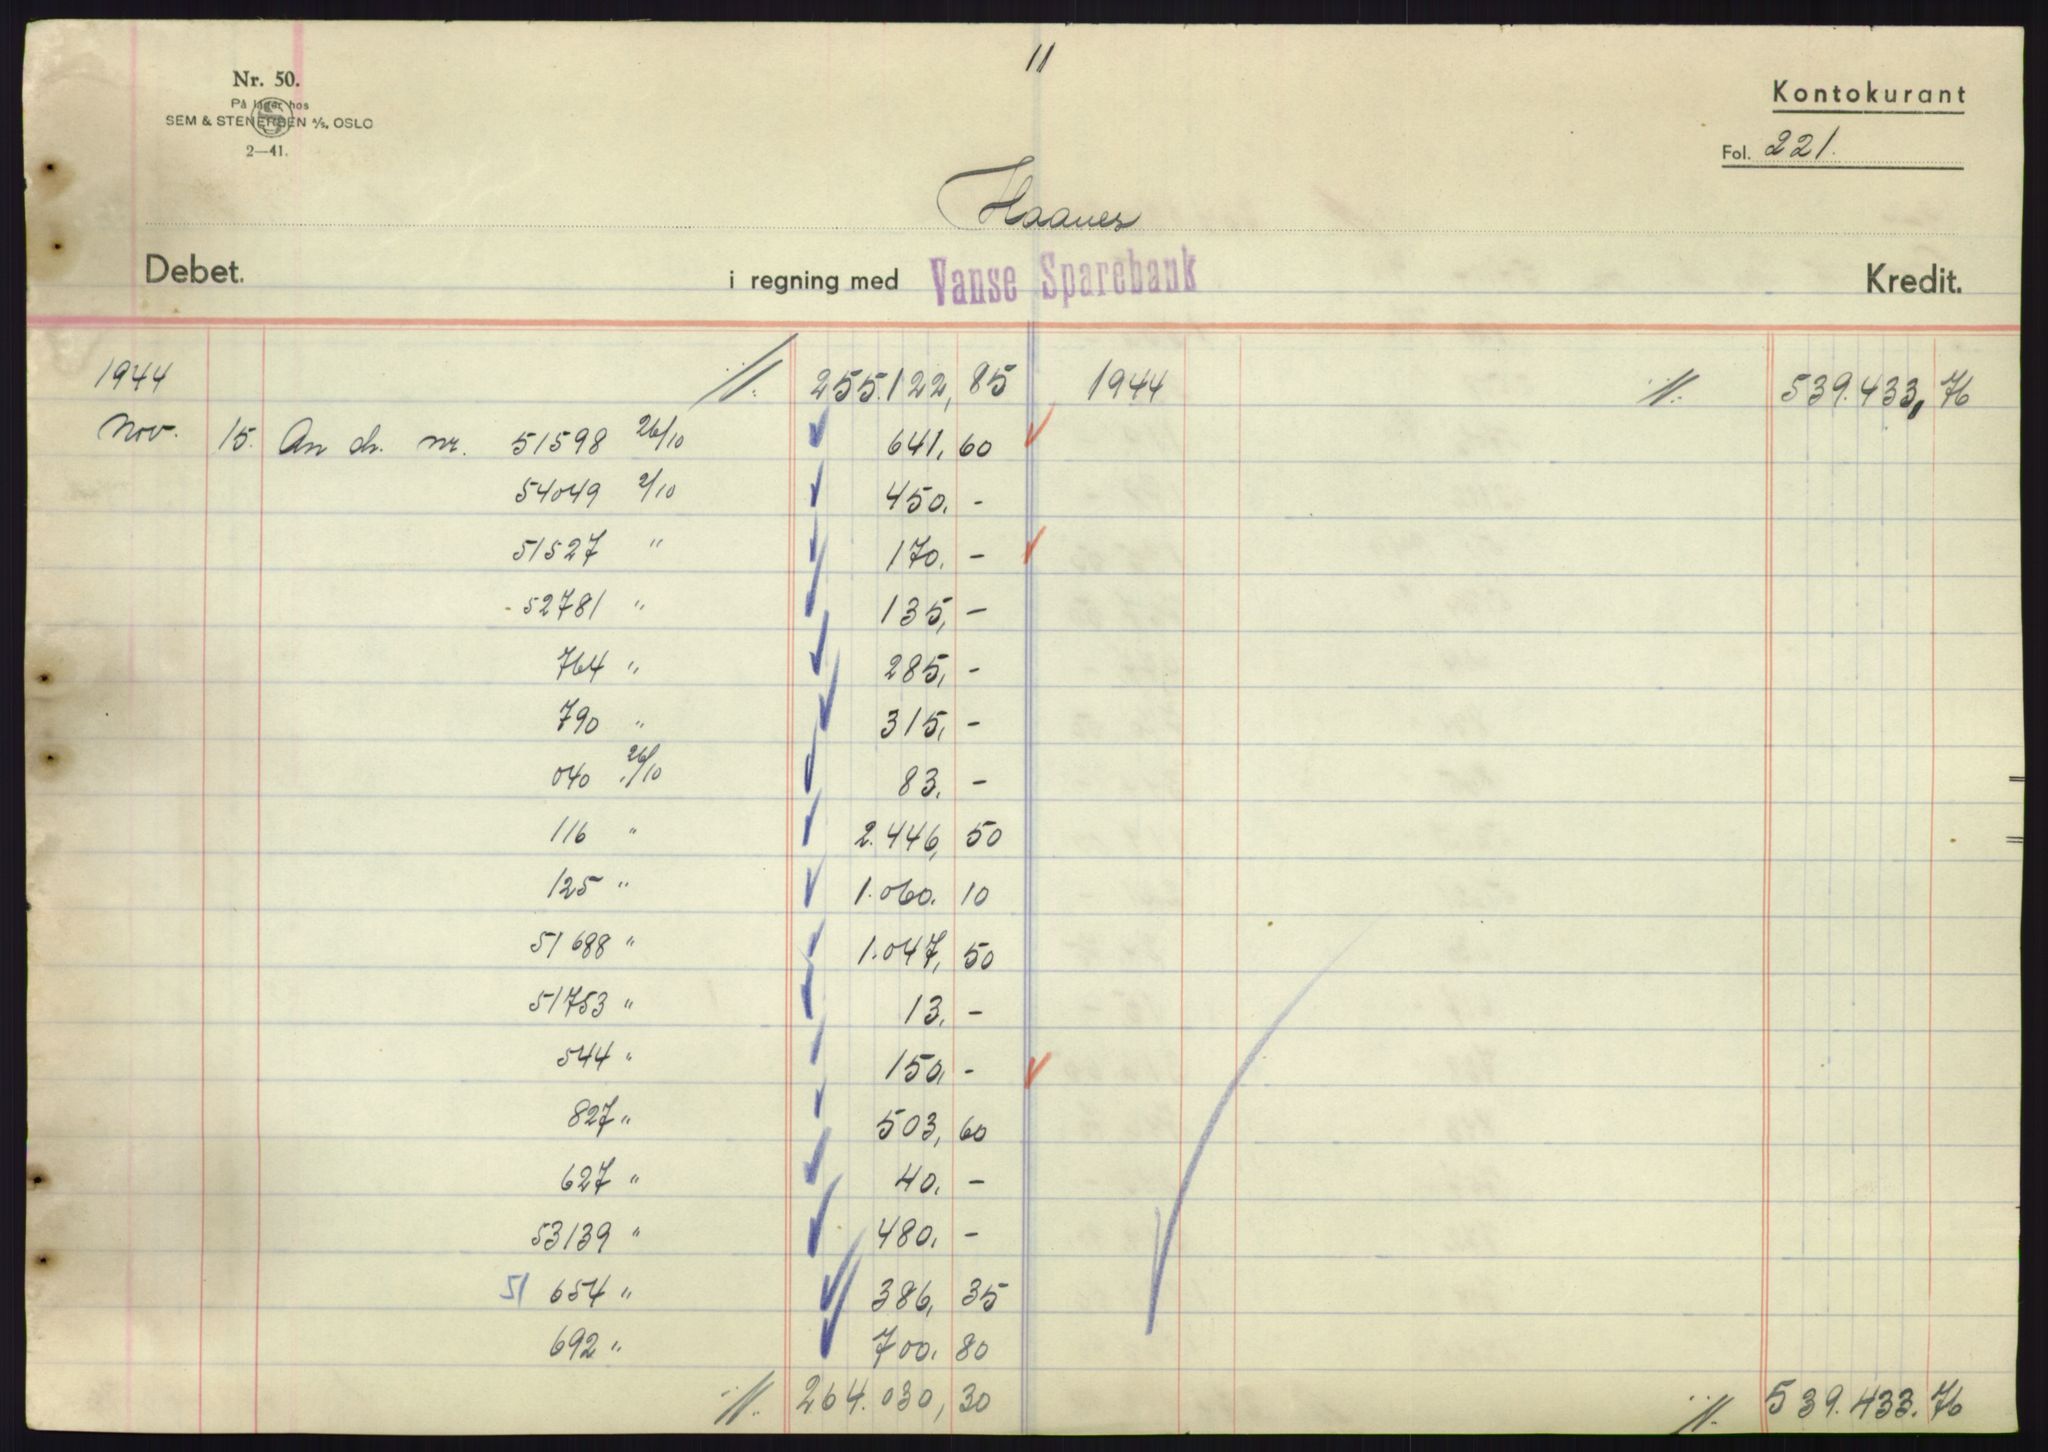 11
Nr. 50.
På lager hos
SEM & STENERSEN A/S, OSLO
2—41.
Kontokurant
Fol. 221.
Haanes
Debet. i regning med Vanse Sparebank Kredit.
1944 ·/· 255.122,85 1944 ·/· 539.433,76
Nov. 15. An ch. nr. 51598 26/10 641,60
54049 2/10 450,-
51527 " 170,-
52781 " 135,-
764 " 285,-
790 " 315,-
040 26/10 83,-
116 " 2.446,50
125 " 1.060,10
51688 " 1.047,50
51753 " 13,-
544 " 150,-
827 " 503,60
627 " 40,-
53139 " 480,-
51 654 " 386,35
692 " 700,80
·/· 264.030,30 ·/· 539.433.76